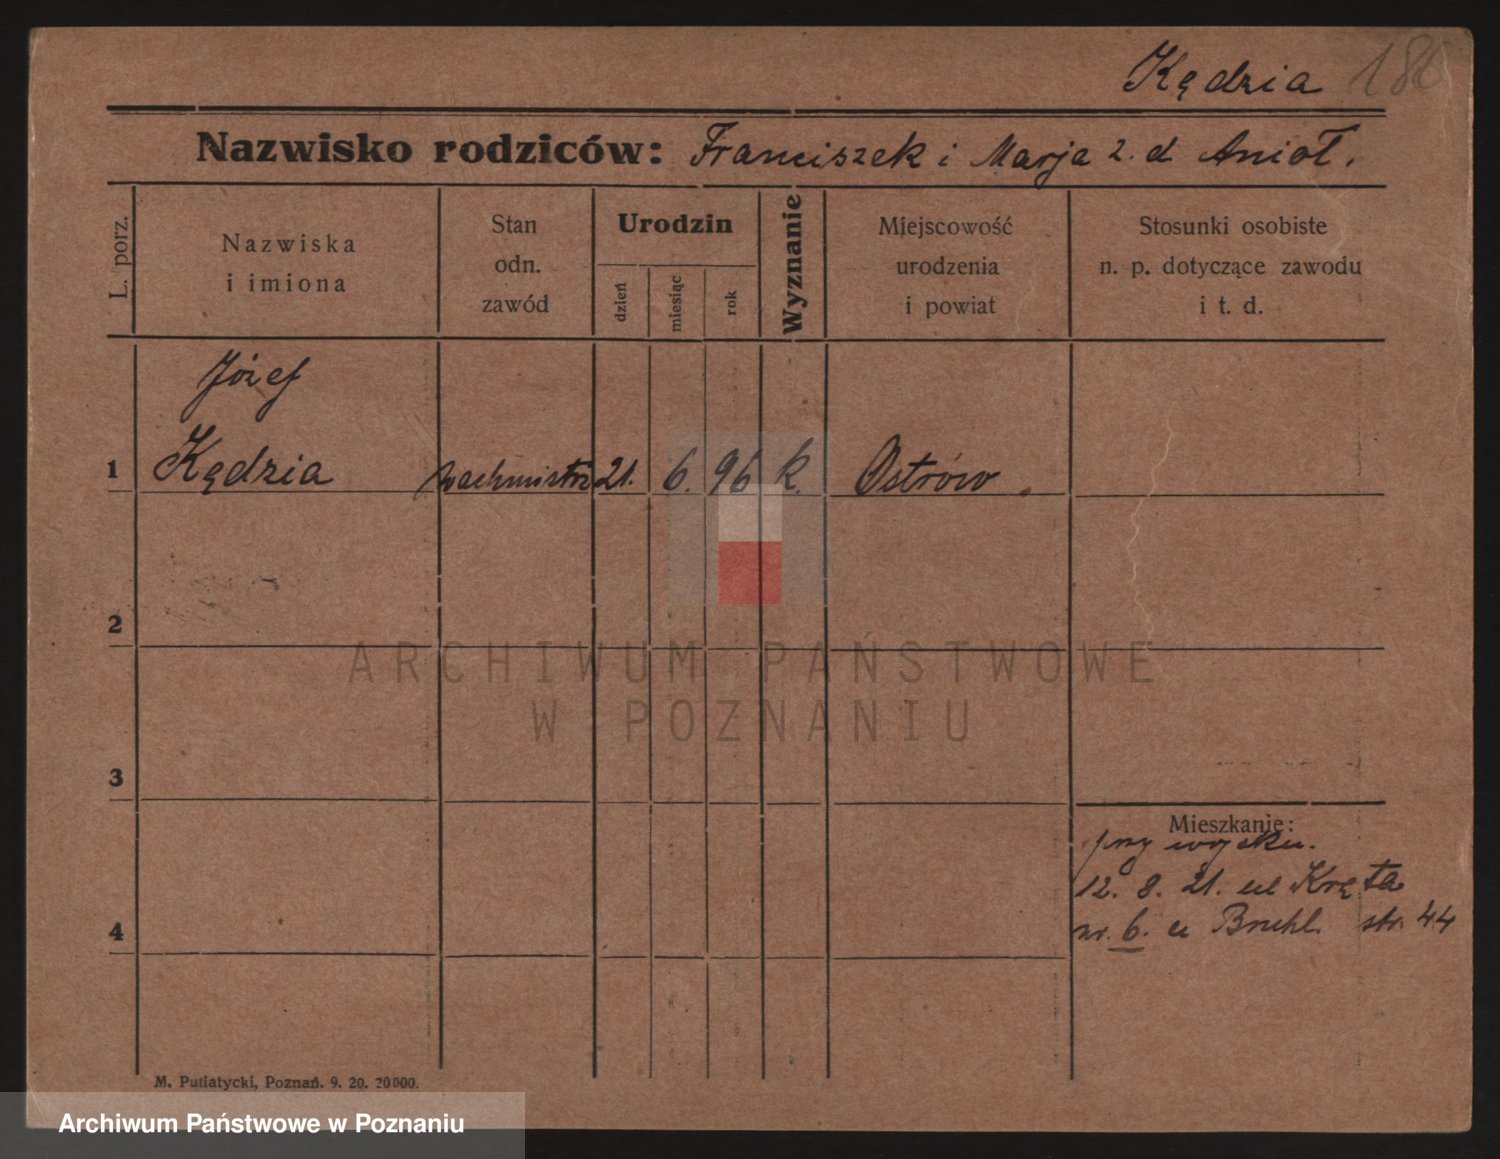 Kędzia 186
Nazwisko rodziców: Franciszek i Marja z. d Anioł.
L. porz.
Nazwiska
i imiona
Stan
odn.
zawód
Urodzin
dzień
miesiąc
rok
Wyznanie
Miejscowość
urodzenia
i powiat
Stosunki osobiste
n. p. dotyczące zawodu
i t. d.
Józef
1 Kędzia wachmistrz 21. 6. 96 k. Ostrów
2
ARCHIWUM PAŃSTWOWE
W POZNANIU
3
Mieszkanie:
przy wojsku.
12. 8. 21. ul Kręta
4
nr. 6. u Bruhl str. 44
M. Putiatycki, Poznań. 9. 20. 20000.
Archiwum Państwowe w Poznaniu